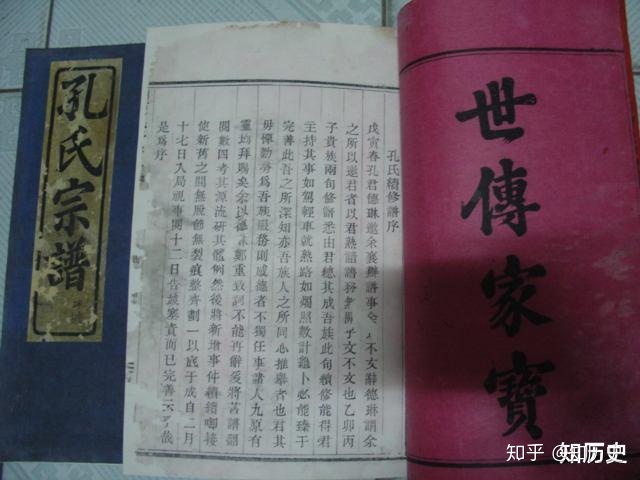 孔氏宗譜
孔氏續修譜序
戊寅春孔君德琳邀余襄辦譜事
不文辭德琳謂余
之所以邀君者以君熟譜
子文不文也乙卯丙
子貴族兩旬修譜悉由君總其成吾族此旬續修能得君
主持其事如駕輕車就熟路如燭照數計龜卜必能臻于
完善此吾之所深知亦吾族人之所同心推舉者也君其
毋憚勤勞爲吾族服務則感德者不獨任事諸人九原有
靈均拜賜矣余以德琳鄭重致詞不能再辭爰將舊譜詔
閱數四考其源流研其體例然後將新增事件續續啣接
使新舊之間無股節無裂痕整齊劃一以底于成自二月
十七日入局視事閱十二日告竣塞責而已完善云乎哉
是爲序
世傳家寶
知乎
知历史